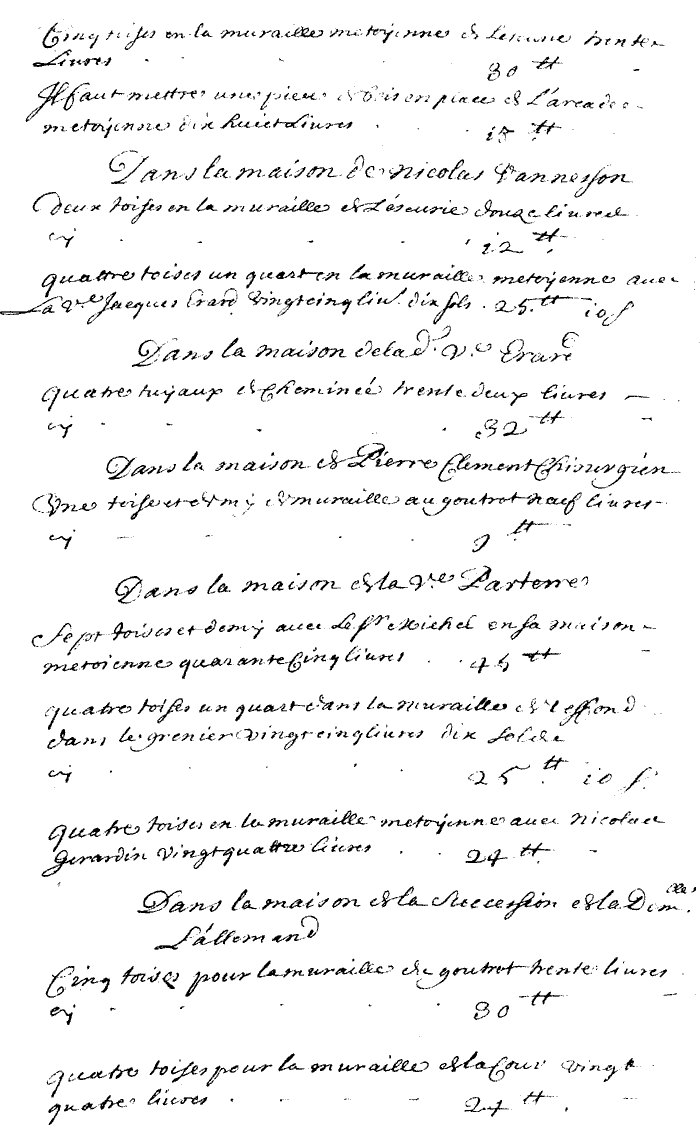 Cinq toises en la muraille metoÿenne de Lescurie trente
Livres 30 tt
Il faut mettre une piece de bois en place de l'arcade
metoÿenne dix huict Livres 18 tt
Dans la maison de Nicolas Vannesson
deux toises en la muraille de L'escurie douze livres
cy 12 tt
quattre toises un quart en la muraille metoÿenne avec
La Ve Jacques Erard vingt cinq liv. dix sols 25 tt 10 s
Dans la maison de la d. Ve Erard
quatre tuÿaux de Cheminée trente deux livres
cy 32 tt
Dans la maison de Pierre Clement Chirurgien
Une toise et demÿ de muraille au goutrot neuf livres
cy 9 tt
Dans la maison de la Ve Parterre
Sept toises et demÿ avec Le Sr Michel en sa maison
metoienne quarante Cinq livres 45 tt
quatre toises un quart dans la muraille de
dans le grenier vingt cinq livres dix sols de
cy 25 tt 10 s.
quatre toises en la muraille metoÿenne avec Nicolas
Gerardin vingt quattre livres 24 tt
Dans la maison de la Succession de la Dem.elle
L'allemand
Cinq toises pour la muraille de goutrot trente livres
cy 30 tt
quatre toises pour la muraille de la Cour vingt
quatre livres 24 tt